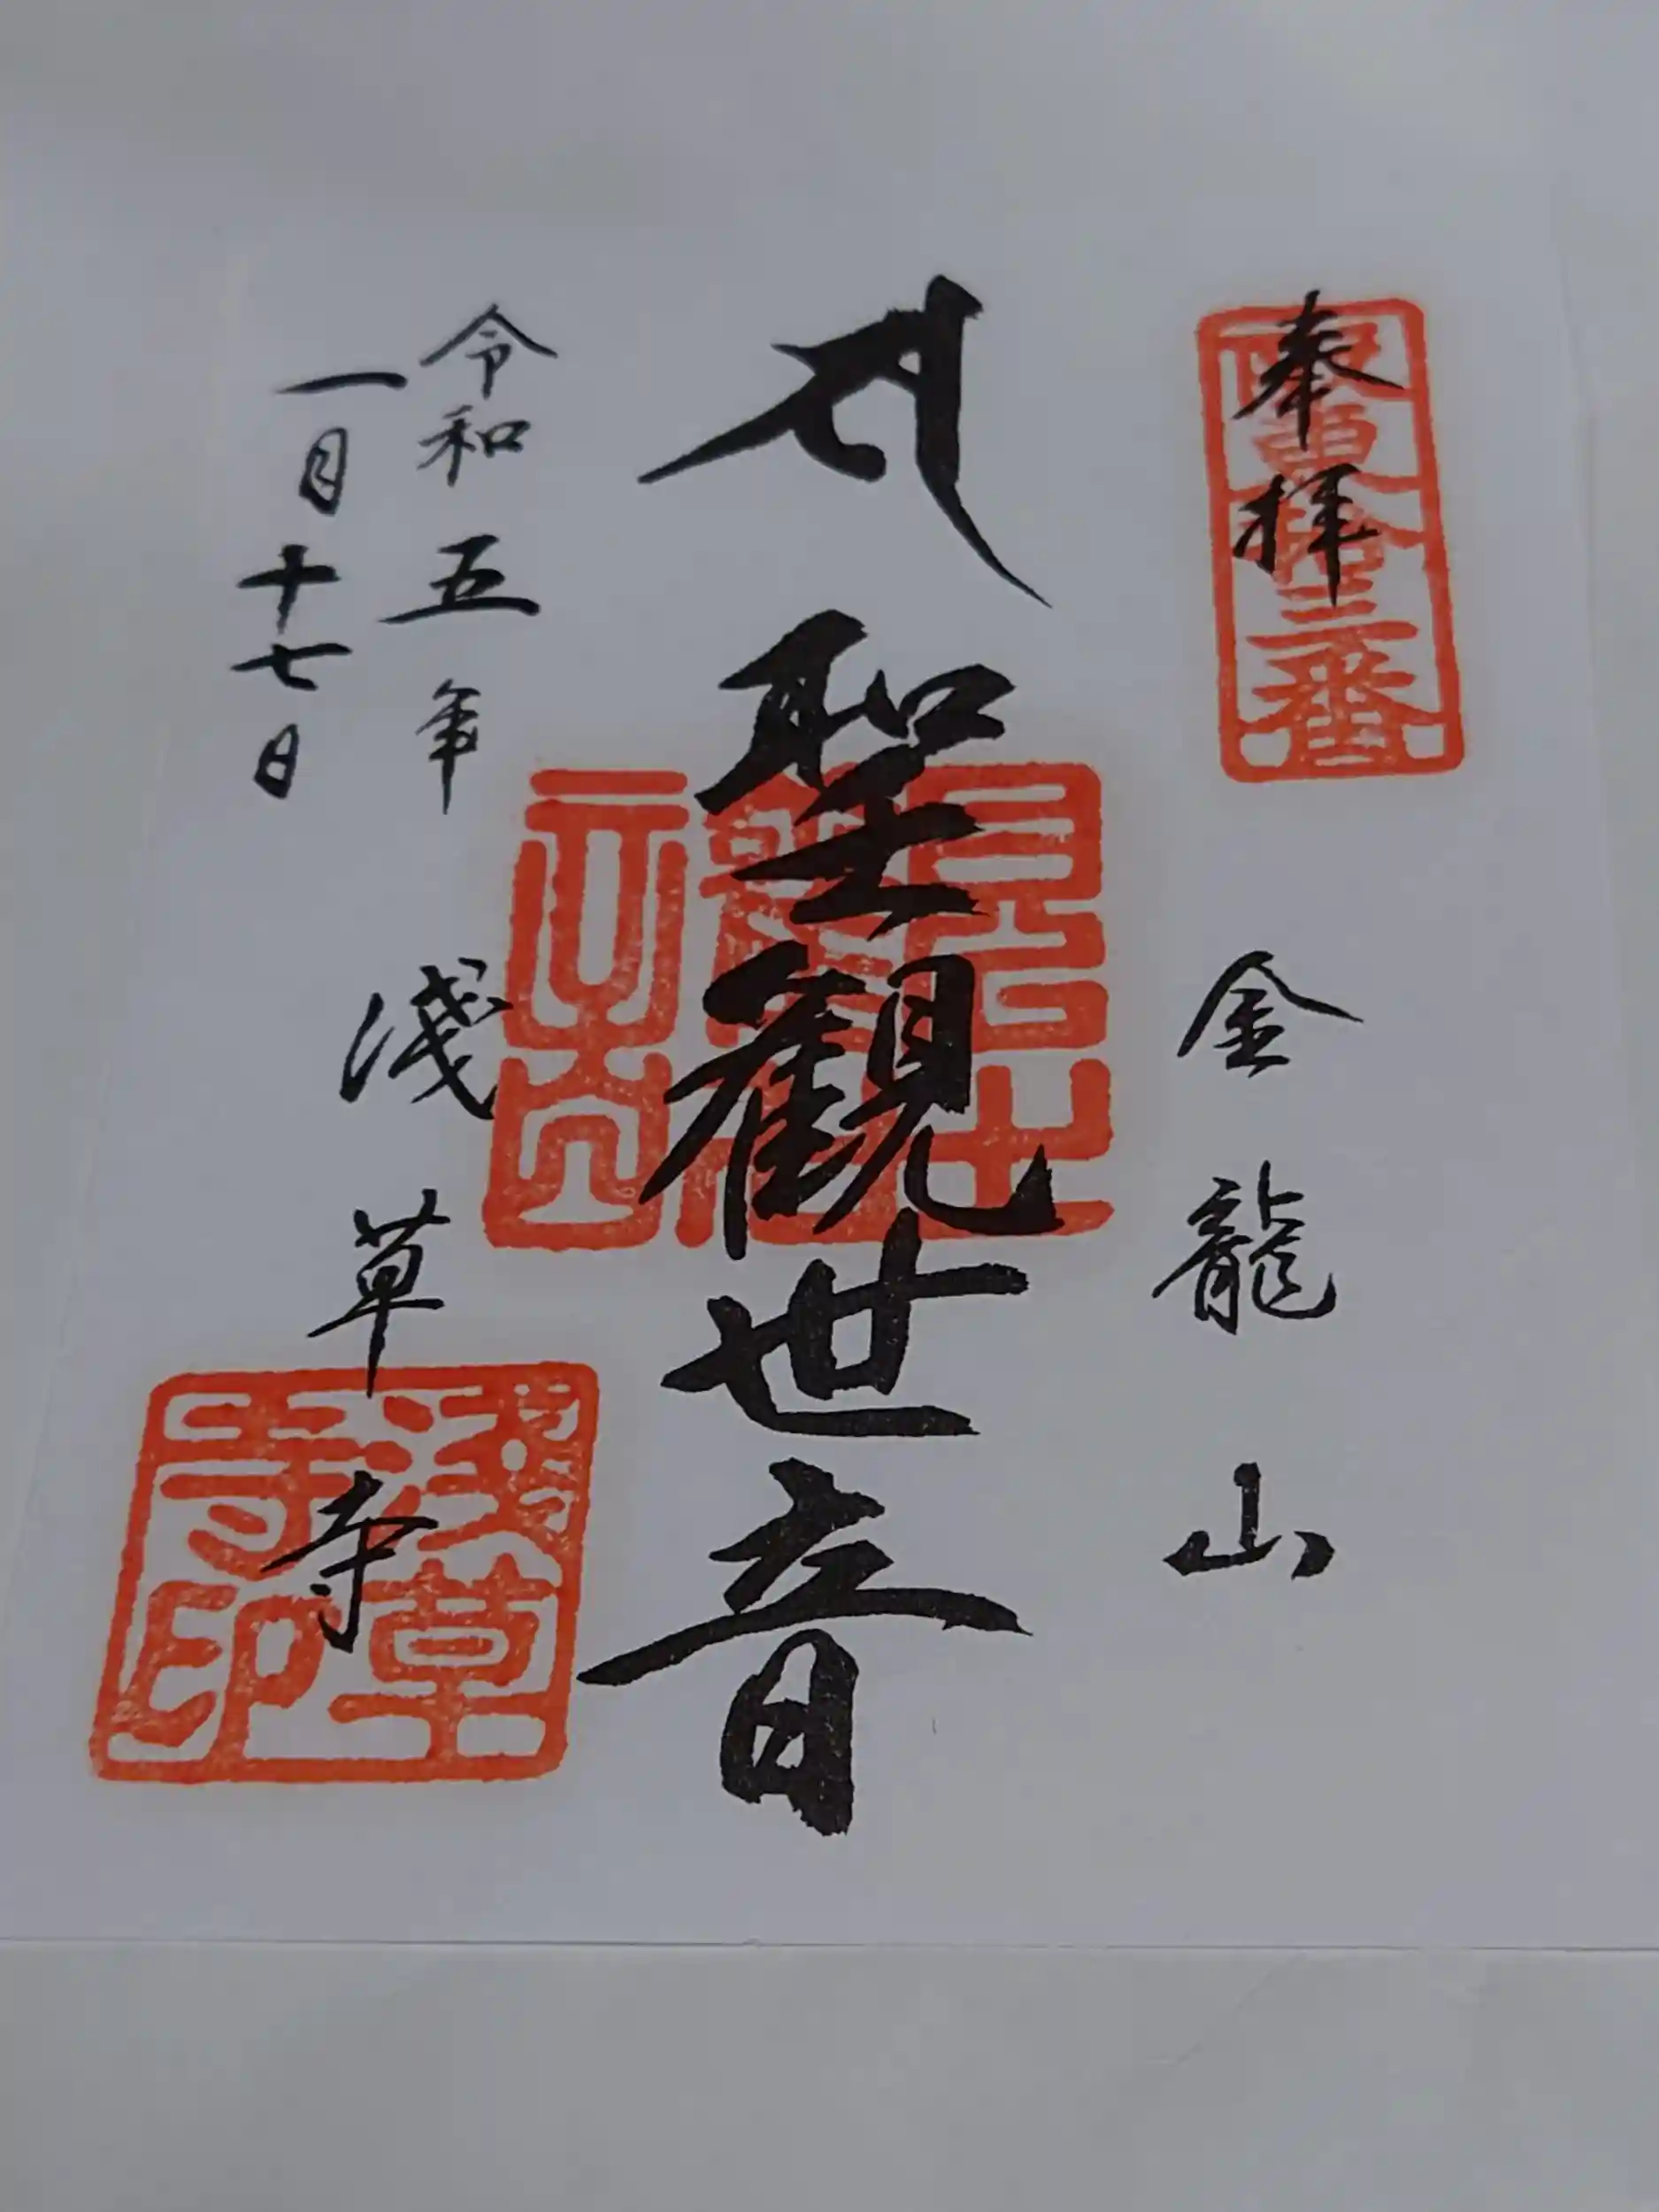 奉拝
坂東拾三番
金龍山
聖観世音
令和五年
一月十七日
浅草寺
浅草寺印